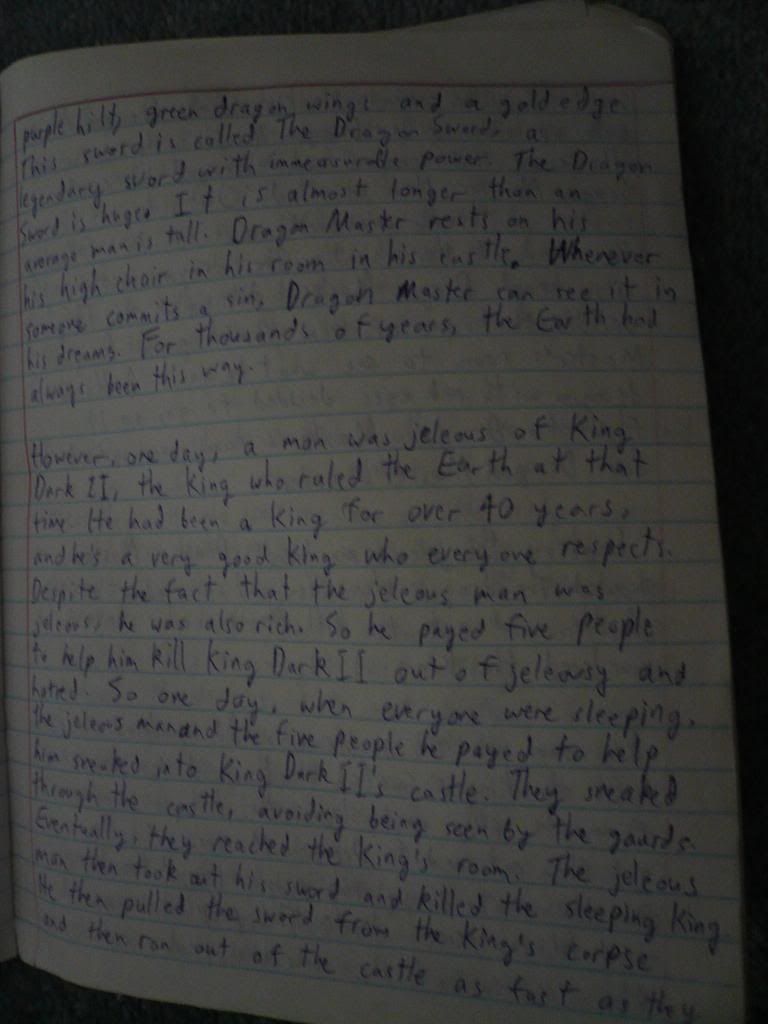 purple hilt, green dragon wings and a gold edge
This sword is called The Dragon Sword, a
legendary sword with immeasurable power. The Dragon
Sword is huge. It is almost longer than an
average man is tall. Dragon Master rests on his
his high chair in his room in his castle. Whenever
someone commits a sin, Dragon Master can see it in
his dreams. For thousands of years, the Earth had
always been this way.
However, one day, a man was jeleous of King
Dark II, the King who ruled the Earth at that
time He had been a King for over 40 years,
and he's a very good King who everyone respects.
Despite the fact that the jeleous man was
jeleous, he was also rich. So he payed five people
to help him kill King Dark II out of jeleousy and
hatred. So one day, when everyone were sleeping,
the jeleous man and the five people he payed to help
him sneaked into King Dark II's castle. They sneaked
through the castle, avoiding being seen by the gaurds.
Eventually, they reached the King's room. The jeleous
man then took out his sword and killed the sleeping King
He then pulled the sword from the King's corpse
and then ran out of the castle as fast as they